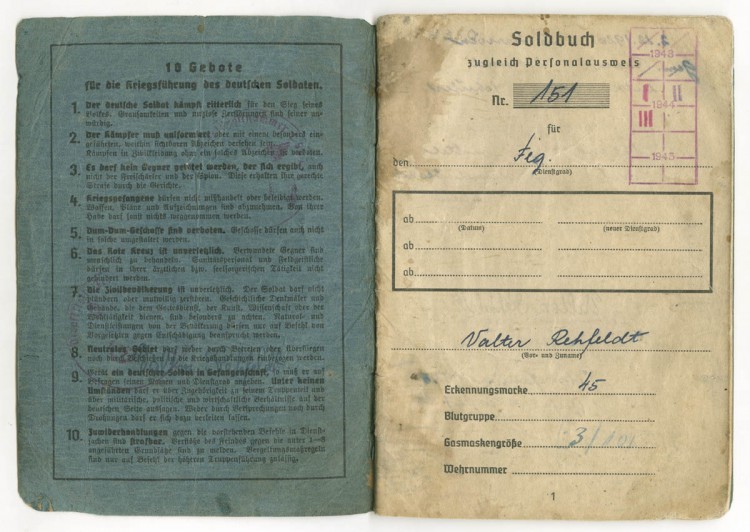 10 Gebote
für die Kriegsführung des deutschen Soldaten.
1. Der deutsche Soldat kämpft ritterlich für den Sieg seines
Volkes. Grausamkeiten und nutzlose Zerstörungen sind seiner un-
würdig.
2. Der Kämpfer muß uniformiert oder mit einem besonders ein-
geführten, weithin sichtbaren Abzeichen versehen sein.
Kämpfen in Zivilkleidung ohne ein solches Abzeichen ist verboten.
3. Es darf kein Gegner getötet werden, der sich ergibt, auch
nicht der Freischärler und der Spion. Diese erhalten ihre gerechte
Strafe durch die Gerichte.
4. Kriegsgefangene dürfen nicht mißhandelt oder beleidigt werden.
Waffen, Pläne und Aufzeichnungen sind abzunehmen. Von ihrer
Habe darf sonst nichts weggenommen werden.
5. Dum-Dum-Geschosse sind verboten. Geschosse dürfen auch nicht
in solche umgestaltet werden.
6. Das Rote Kreuz ist unverletzlich. Verwundete Gegner sind
menschlich zu behandeln. Sanitätspersonal und Feldgeistliche
dürfen in ihrer ärztlichen bzw. seelsorgerischen Tätigkeit nicht
gehindert werden.
7. Die Zivilbevölkerung ist unverletzlich. Der Soldat darf nicht
plündern oder mutwillig zerstören. Geschichtliche Denkmäler und
Gebäude, die dem Gottesdienst, der Kunst, Wissenschaft oder der
Wohltätigkeit dienen, sind besonders zu achten. Natural- und
Dienstleistungen von der Bevölkerung dürfen nur auf Befehl von
Vorgesetzten gegen Entschädigung beansprucht werden.
8. Neutrales Gebiet darf weder durch Betreten oder Überfliegen
noch durch Beschießen in die Kriegshandlungen einbezogen werden.
9. Gerät ein deutscher Soldat in Gefangenschaft, so muß er auf
Befragen seinen Namen und Dienstgrad angeben. Unter keinen
Umständen darf er über Zugehörigkeit zu seinem Truppenteil und
über militärische, politische und wirtschaftliche Verhältnisse auf der
deutschen Seite aussagen. Weder durch Versprechungen noch durch
Drohungen darf er sich dazu verleiten lassen.
10. Zuwiderhandlungen gegen die vorstehenden Befehle in Dienst-
sachen sind strafbar. Verstöße des Feindes gegen die unter 1—8
angeführten Grundsätze sind zu melden. Vergeltungsmaßregeln
sind nur auf Befehl der höheren Truppenführung zulässig.
Soldbuch
zugleich Personalausweis
Nr. 151
für
den Flg.
(Dienstgrad)
1943
1944
I II
III
1945
ab
(Datum) (neuer Dienstgrad)
ab
ab
Walter Rehfeldt
(Vor- und Zuname)
Erkennungsmarke 45
Blutgruppe
Gasmaskengröße 3/
Wehrnummer
1